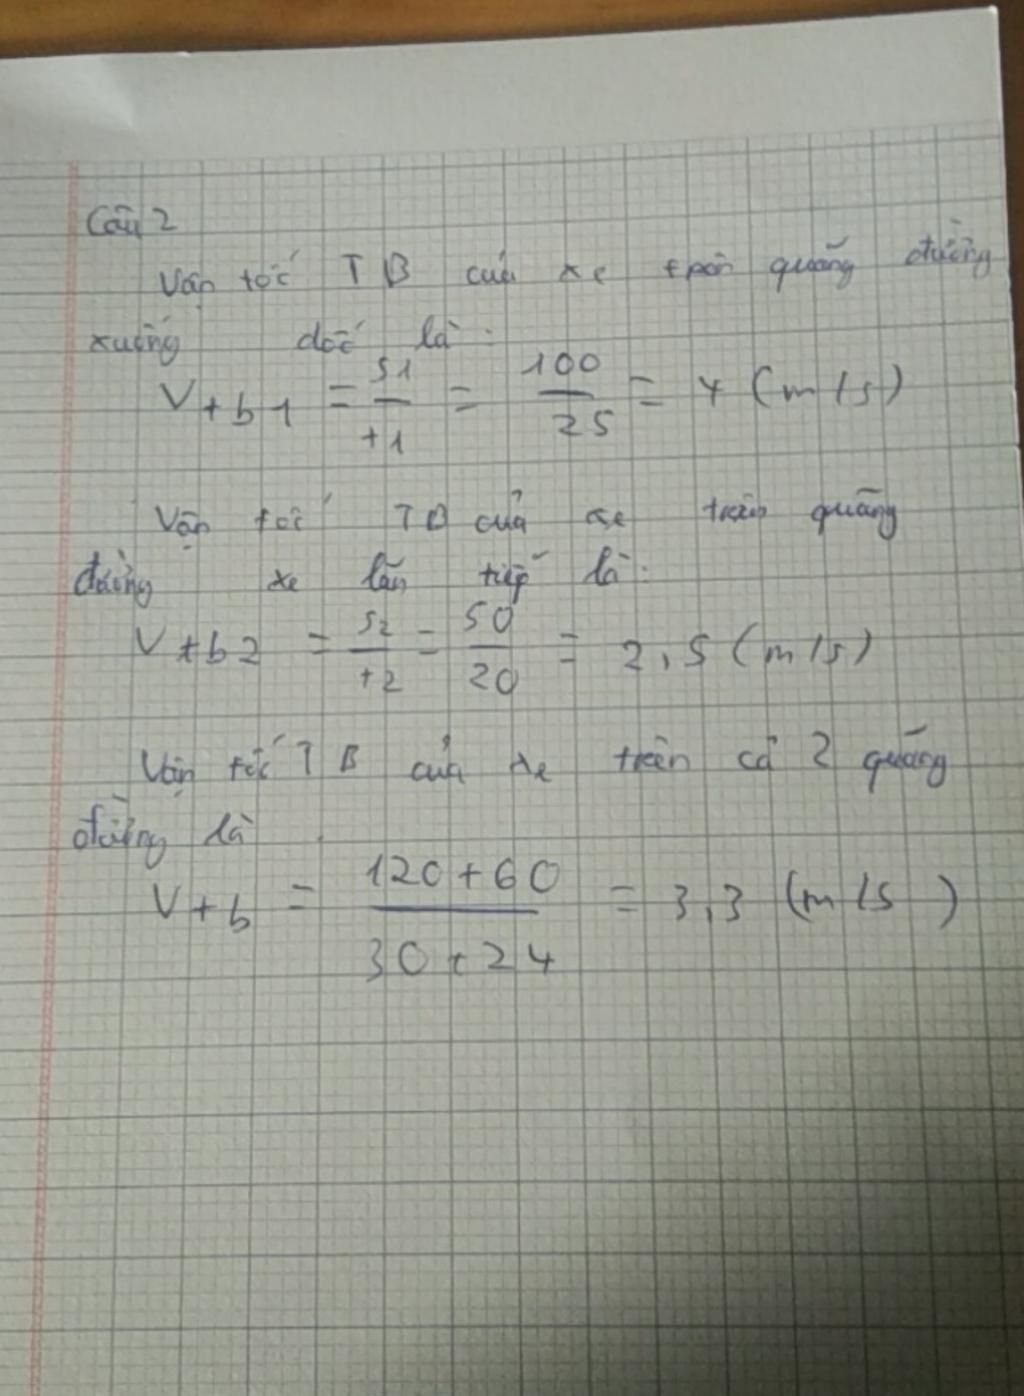 Câu 2
Vận tốc TB của xe trên quãng đường
xuống dốc là:
V+b1 = S1/+1 = 100/25 = 4 (m/s)
Vận tốc TB của xe trên quãng
đường xe lăn tiếp là:
V+b2 = S2/+2 = 50/20 = 2,5 (m/s)
Vận tốc TB của xe trên cả 2 quãng
đường là
V+b = 120+60/30+24 = 3,3 (m/s)